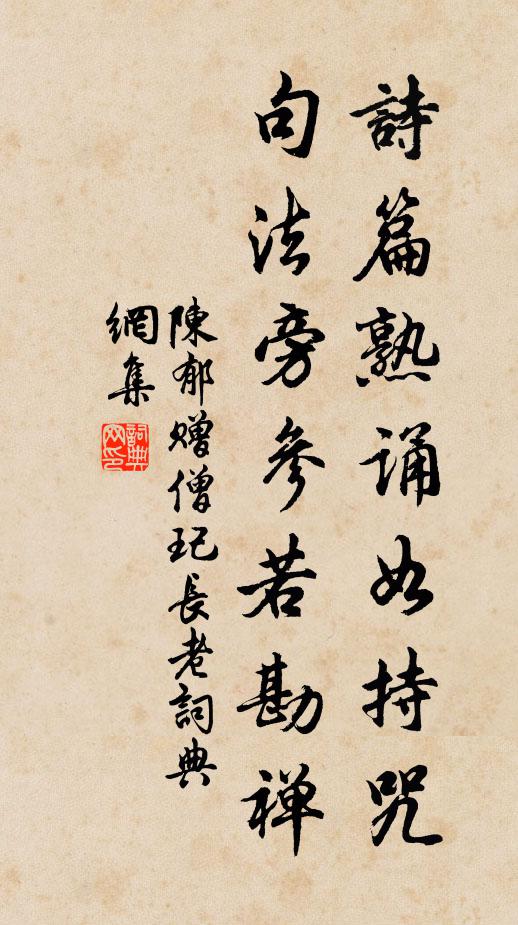 詩篇熟誦如持咒
句法旁參若勘禅
陳郁贈僧玘長老詞典
網集
詞典
网印